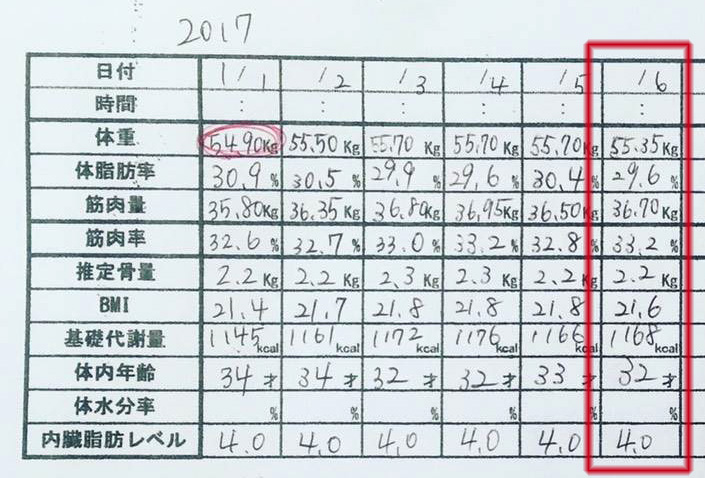 2017
日付 1/1 /2 /3 /4 /5 /6
時間 : : : : : :
体重 54.90Kg 55.50Kg 55.70Kg 55.70Kg 55.70Kg 55.35Kg
体脂肪率 30.9% 30.5% 29.9% 29.6% 30.4% 29.6%
筋肉量 35.80Kg 36.35Kg 36.80Kg 36.95Kg 36.50Kg 36.70Kg
筋肉率 32.6% 32.7% 33.0% 33.2% 32.8% 33.2%
推定骨量 2.2Kg 2.2Kg 2.3Kg 2.3Kg 2.2Kg 2.2Kg
BMI 21.4 21.7 21.8 21.8 21.8 21.6
基礎代謝量 1145kcal 1161kcal 1172kcal 1176kcal 1166kcal 1168kcal
体内年齢 34才 34才 32才 32才 33才 32才
体水分率 % % % % % %
内臓脂肪レベル 4.0 4.0 4.0 4.0 4.0 4.0